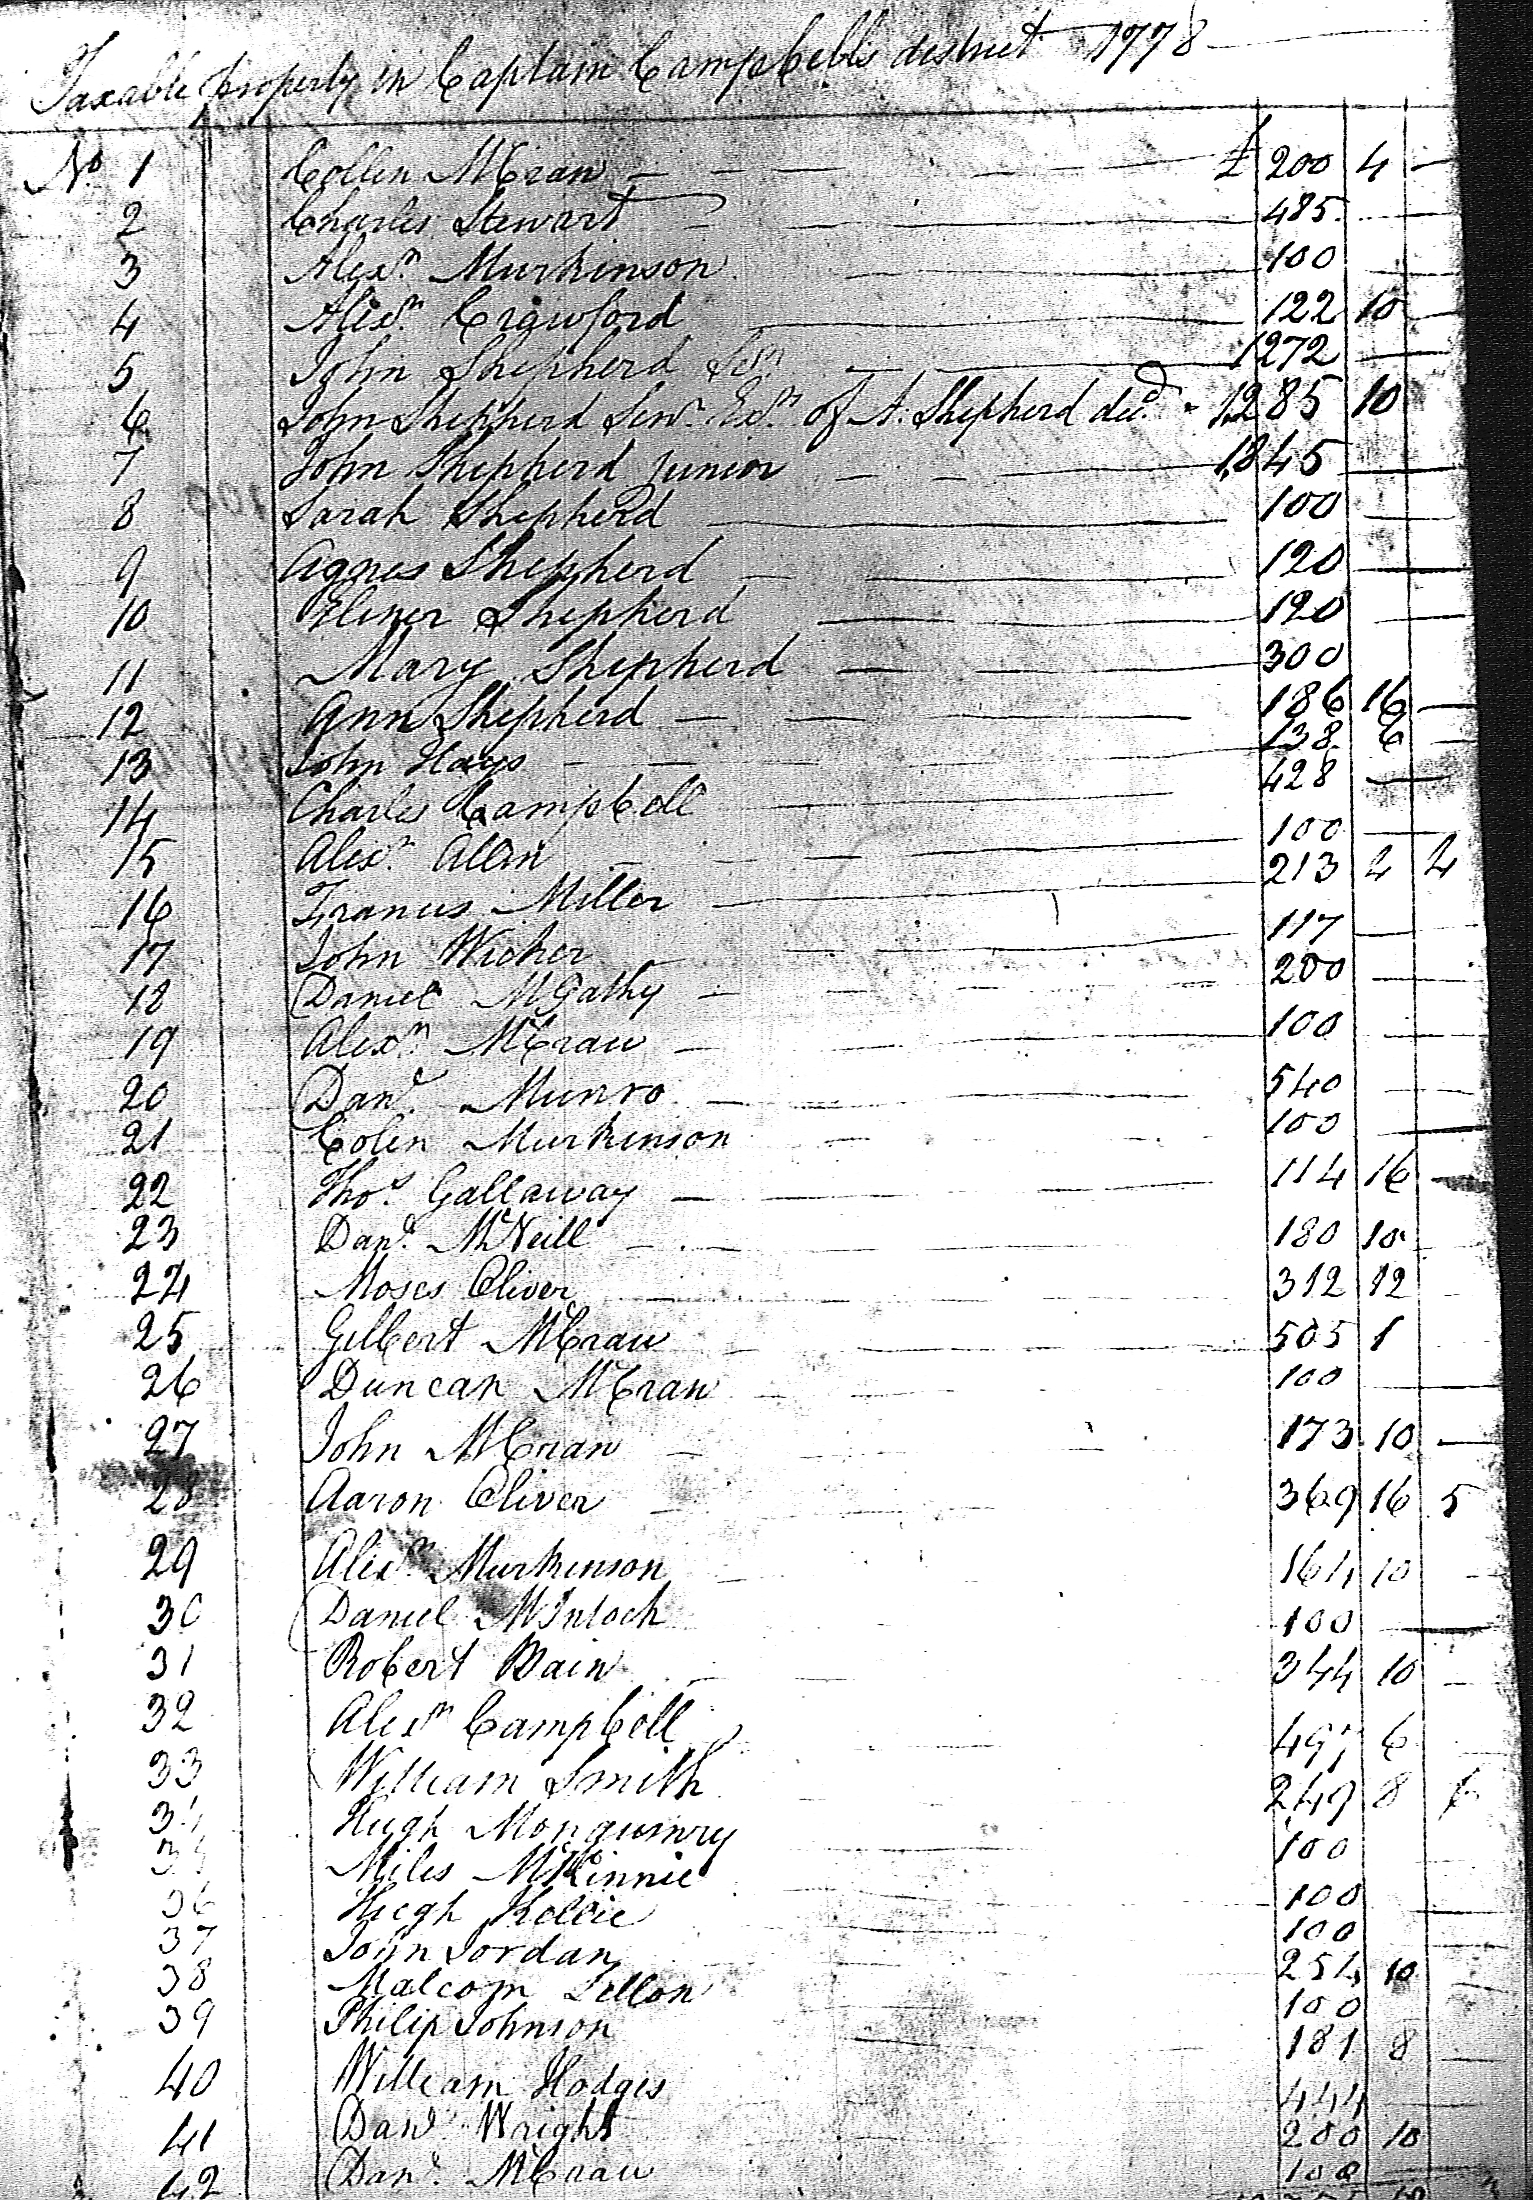 Taxable property in Captain Campbells district 1778
No. 1 Collin McCraw £ 200 4
2 Charles Stewart 485
3 Alexr. Murkinson 100
4 Alexr. Crawford 122 10
5 John Shepherd Senr. 1272
6 John Shepherd Senr. Exr. of A. Shepherd decd. 1285 10
7 John Shepherd junior 1845
8 Sarah Shepherd 100
9 Agnes Shepherd 120
10 Eliner Shepherd 120
11 Mary Shepherd 300
12 Ann Shepherd 186 16
13 John Hays 138 6
14 Charles Campbell 428
15 Alexr. Allin 100
16 Francis Miller 213 4 4
17 John Wicker 117
18 Daniel McGathy 200
19 Alexr. McCraw 100
20 Danl. Munro 540
21 Colin Murkinson 100
22 Thos. Gallaway 114 16
23 Danl. McNeill 180 10
24 Moses Oliver 312 12
25 Gilbert McCraw 505 1
26 Duncan McCraw 100
27 John McCraw 173 10
28 Aaron Oliver 369 16 5
29 Alexr. Murkinson 164 10
30 Daniel McIntoch 100
31 Robert Bain 344 10
32 Alexr. Campbell 497 6
33 William Smith 249 8
34 Hugh Mongumry 100
35 Miles McKinnie 100
36 Hugh Kellie 100
37 John Jordan 254 10
38 Malcom 100
39 Philip Johnson 181 8
40 William Hodges 444
41 Danl. Wright 200 10
42 Danl. McCraw 100